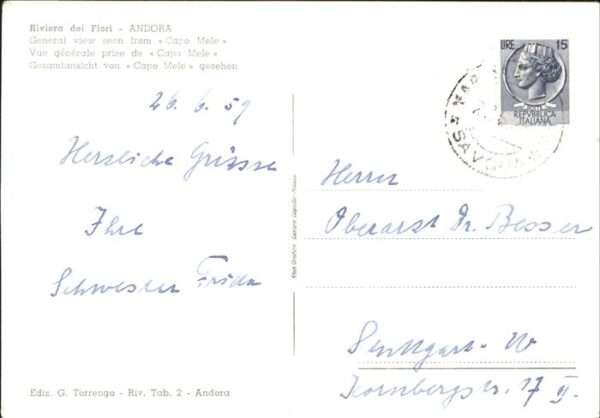 Riviera dei Fiori - ANDORA
General view seen from « Capo Mele »
Vue générale prise de « Capo Mele »
Gesamtansicht von « Capo Mele » gesehen
LIRE 15
REPVBBLICA
ITALIANA
SAVONA
26.6.59
Herzliche Grüsse
Ihre
Schwester Frida
Herrn
Oberarzt Dr. Besser
Stuttgart-W
Kornbergstr. 17 II.
Ediz. G. Torrengo - Riv. Tab. 2 - Andora